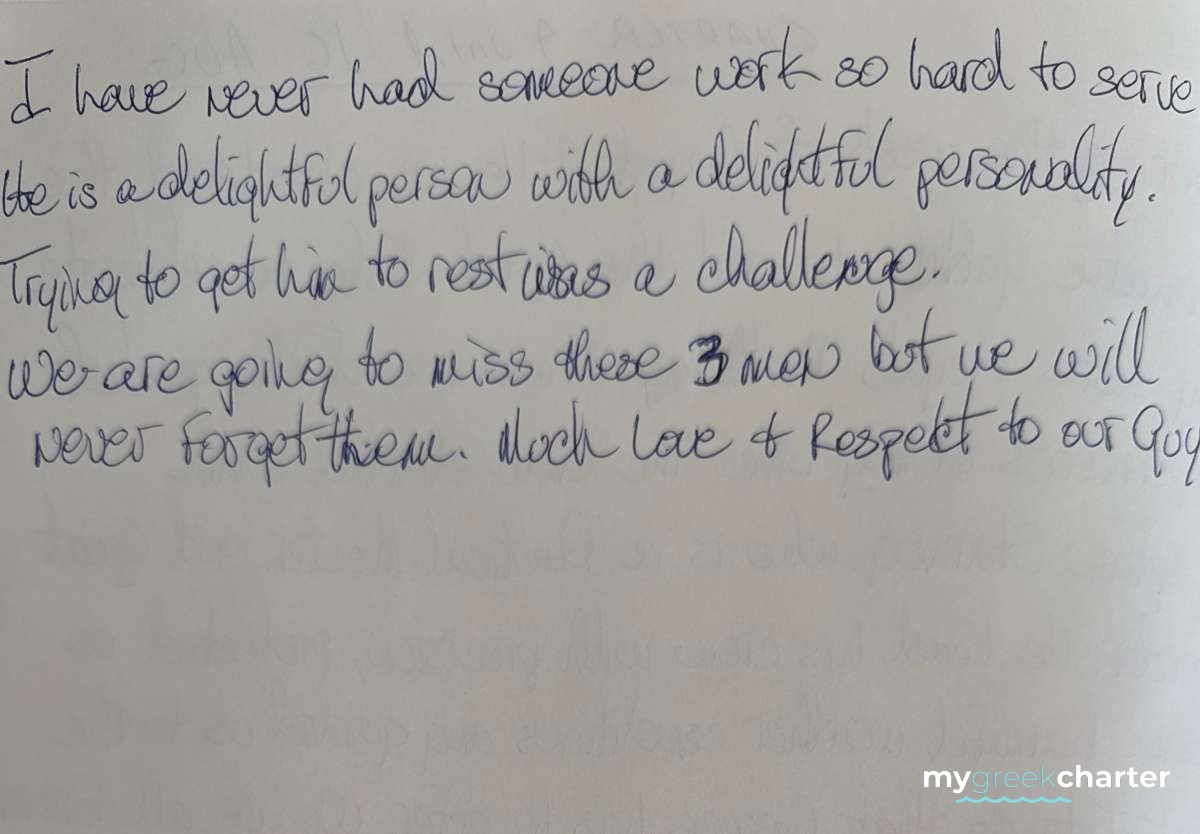 I have never had someone work so hard to serve
He is a delightful person with a delightful personality.
Trying to get him to rest was a challenge.
We are going to miss these 3 men but we will
never forget them. Much Love & Respect to our Guy
mygreekcharter